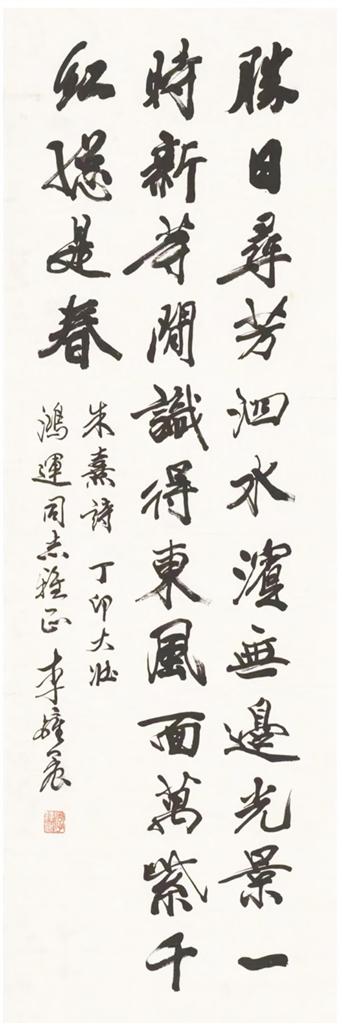 勝日尋芳泗水濱無邊光景一
時新等閒識得東風面萬紫千
紅總是春
朱熹詩 丁卯大壯
鴻運同志雅正 李